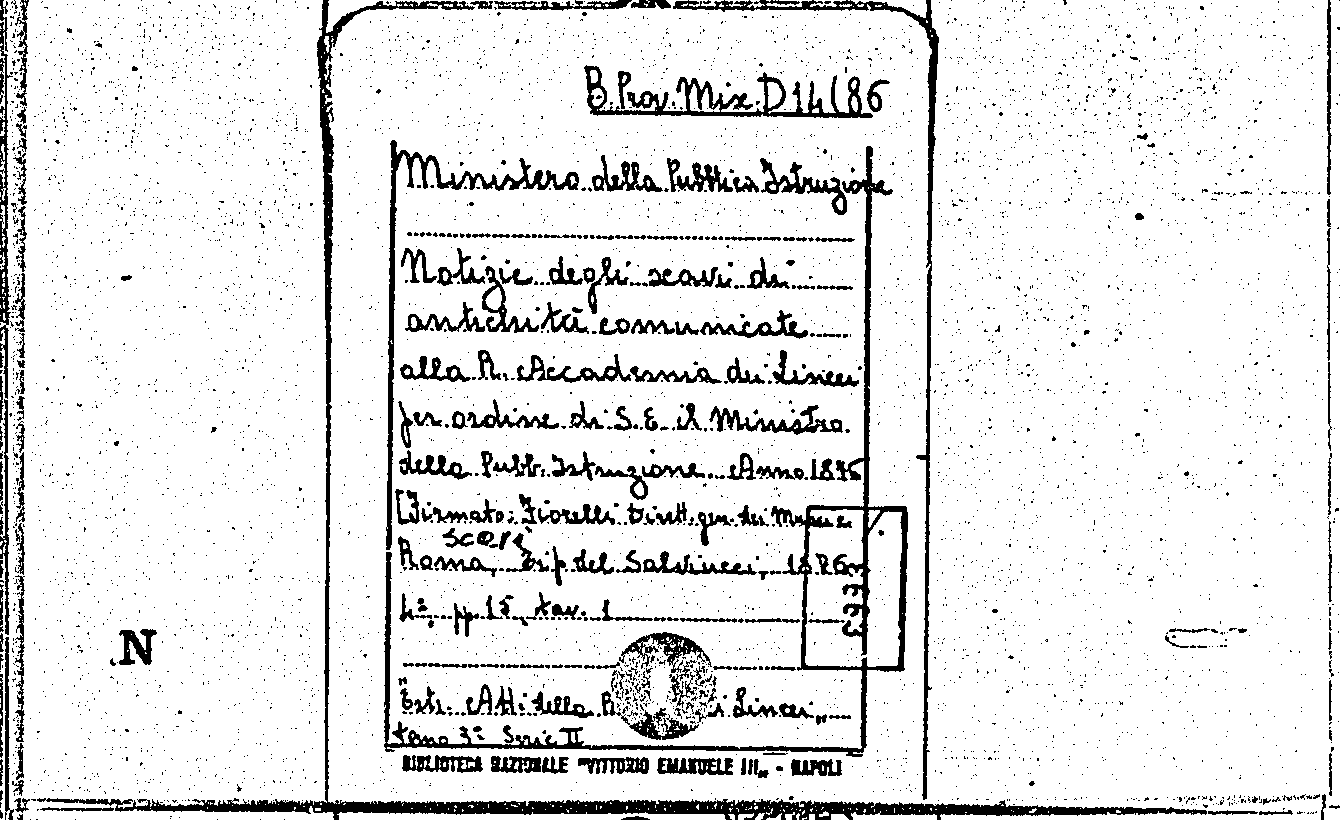 B. Prov. Mix. D 14(86
Ministero della Pubblica Istruzione
Notizie degli scavi di
antichità comunicate
alla R. Accademia dei Lincei
per ordine di S. E. il Ministro
della Pubb. Istruzione. Anno 1876
[Firmato: Fiorelli Dirett. gen. dei Musei e
scavi
Roma, Tip. del Salviucci, 1876
4°, pp 15, tav. 1
"Estr. Atti della R. Lincei"
tomo 3° Serie II
BIBLIOTECA NAZIONALE "VITTORIO EMANUELE III" - NAPOLI
N